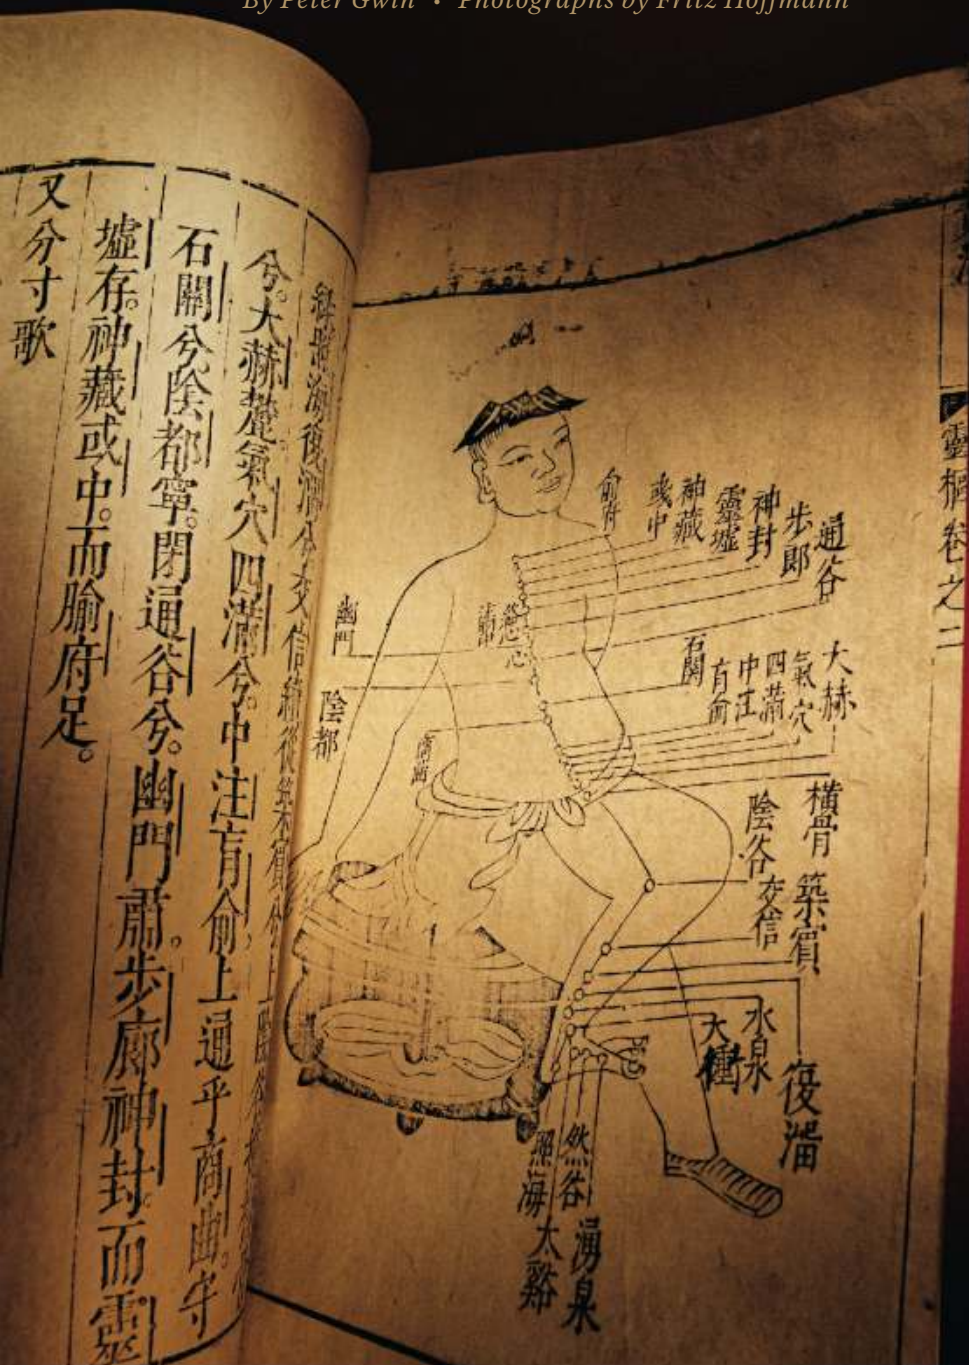 By Peter Gwin • Photographs by Fritz Hoffmann
靈樞卷之二
俞府
彧中
神藏
靈墟
神封
步郎
通谷
幽門
陰都
石關
肓俞
中注
四滿
氣穴
大赫
橫骨
陰谷
築賓
交信
復溜
水泉
大鍾
照海
然谷
太谿
湧泉
照海復溜兮交信續從築賓兮上陰谷
兮。大赫麓氣穴四滿兮。中注肓俞上通乎商曲。守
石關兮陰都寧。閉通谷兮。幽門肅。步廊神封。而靈
墟存。神藏或中。而腧府足。
又分寸歌